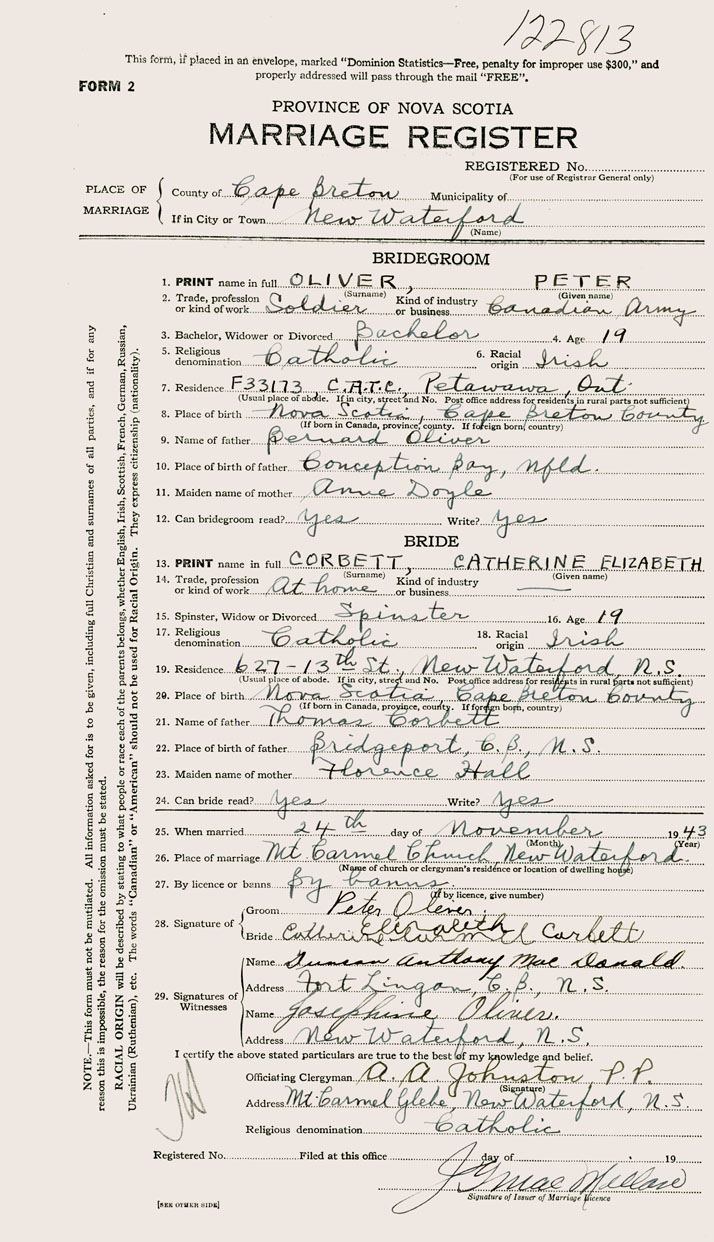 122813
This form, if placed in an envelope, marked "Dominion Statistics—Free, penalty for improper use $300," and
properly addressed will pass through the mail "FREE".
FORM 2
PROVINCE OF NOVA SCOTIA
MARRIAGE REGISTER
REGISTERED No.
(For use of Registrar General only)
PLACE OF MARRIAGE
County of Cape Breton Municipality of
If in City or Town New Waterford
(Name)
BRIDEGROOM
1. PRINT name in full OLIVER, PETER
(Surname) (Given name)
2. Trade, profession or kind of work Soldier Kind of industry or business Canadian Army
3. Bachelor, Widower or Divorced Bachelor 4. Age 19
5. Religious denomination Catholic 6. Racial origin Irish
7. Residence F33173, C.A.T.C., Petawawa, Ont.
(Usual place of abode. If in city, street and No. Post office address for residents in rural parts not sufficient)
8. Place of birth Nova Scotia, Cape Breton County
(If born in Canada, province, county. If foreign born, country)
9. Name of father Bernard Oliver
10. Place of birth of father Conception Bay, Nfld.
11. Maiden name of mother Annie Doyle
12. Can bridegroom read? Yes Write? Yes
BRIDE
13. PRINT name in full CORBETT, CATHERINE ELIZABETH
(Surname) (Given name)
14. Trade, profession or kind of work At home Kind of industry or business —
15. Spinster, Widow or Divorced Spinster 16. Age 19
17. Religious denomination Catholic 18. Racial origin Irish
19. Residence 627-13th St., New Waterford, N.S.
(Usual place of abode. If in city, street and No. Post office address for residents in rural parts not sufficient)
20. Place of birth Nova Scotia, Cape Breton County
(If born in Canada, province, county. If foreign born, country)
21. Name of father Thomas Corbett
22. Place of birth of father Bridgeport, C.B., N.S.
23. Maiden name of mother Florence Hall
24. Can bride read? Yes Write? Yes
25. When married 24th day of November 1943
(Month) (Year)
26. Place of marriage Mt. Carmel Church, New Waterford.
(Name of church or clergyman's residence or location of dwelling house)
27. By licence or banns By banns.
(If by licence, give number)
28. Signature of
Groom Peter Oliver
Bride Catherine Elizabeth Corbett
29. Signatures of Witnesses
Name Duncan Anthony Mac Donald.
Address Fort Lingan, C.B., N.S.
Name Josephine Oliver.
Address New Waterford, N.S.
I certify the above stated particulars are true to the best of my knowledge and belief.
Officiating Clergyman A. A Johnston P.P.
(Signature)
Address Mt. Carmel Glebe, New Waterford, N.S.
Religious denomination Catholic
Registered No. Filed at this office day of 19
J G MacMillan
Signature of Issuer of Marriage Licence
[SEE OTHER SIDE]
NOTE.—This form must not be mutilated. All information asked for is to be given, including full Christian and surnames of all parties, and if for any
reason this is impossible, the reason for the omission must be stated.
RACIAL ORIGIN will be described by stating to what people or race each of the parents belongs, whether English, Irish, Scottish, French, German, Russian,
Ukrainian (Ruthenian), etc. The words "Canadian" or "American" should not be used for Racial Origin. They express citizenship (nationality).